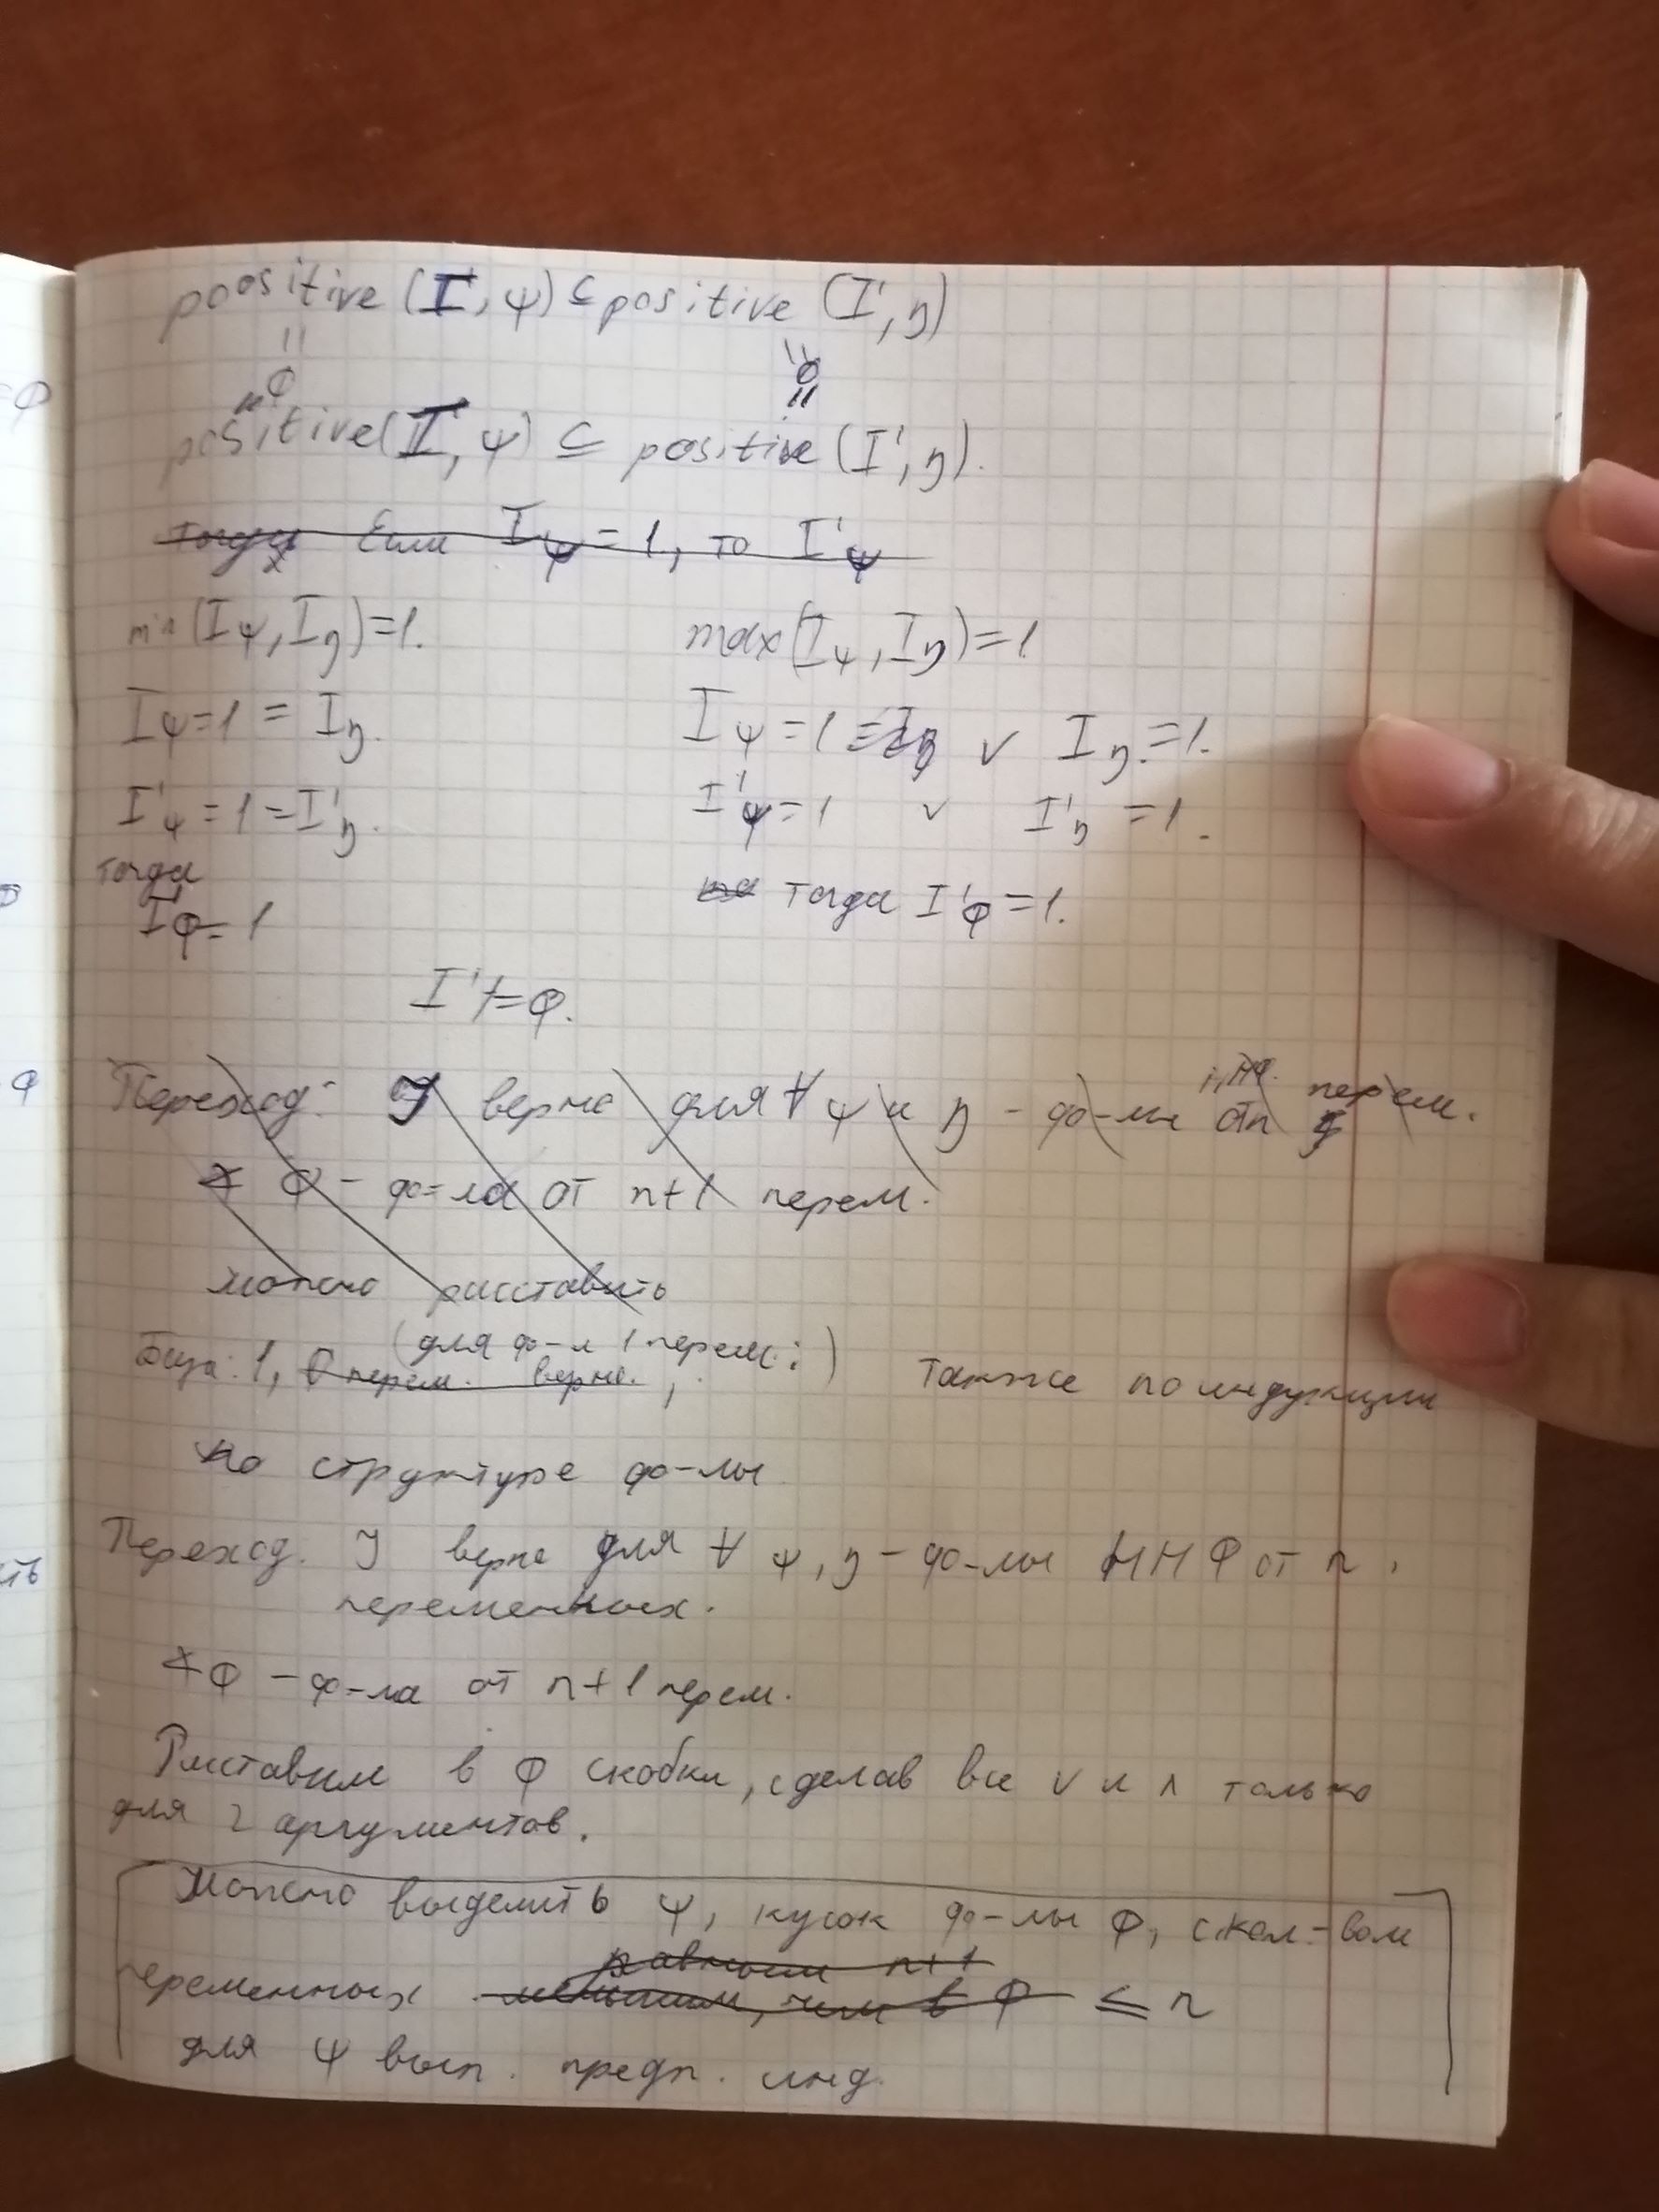 poositive (I', ψ) ⊆ positive (I', η)
= =
φ φ
= =
positive(I', ψ) ⊆ positive (I', η).
тогда Если Iψ = 1, то I'ψ
min(Iψ, Iη)=1. max(Iψ, Iη)=1
Iψ=1 = Iη. Iψ = 1 = Iη ∨ Iη = 1.
I'ψ = 1 = I'η. I'ψ = 1 ∨ I'η = 1.
тогда
I'φ = 1 тогда I'φ = 1.
I' ⊨ φ.
Переход: верно для ∀ ψ и η - фо-лы от n перем.
φ - фо-ла от n+1 перем.
можно расставить
(для фо-л 1 перем:)
База: 1, 0 перем. верно. , также по индукции
по структуре фо-лы
Переход. верно для ∀ ψ, η - фо-лы ННФ от n
переменных.
φ - фо-ла от n+1 перем.
Расставим в φ скобки, сделав все ∨ и ∧ только
для 2 аргументов.
Можно выделить ψ, кусок фо-лы φ, с кол-вом
равным n+1
переменных меньшим, чем в φ ≤ n
для ψ вып. предп. инд.